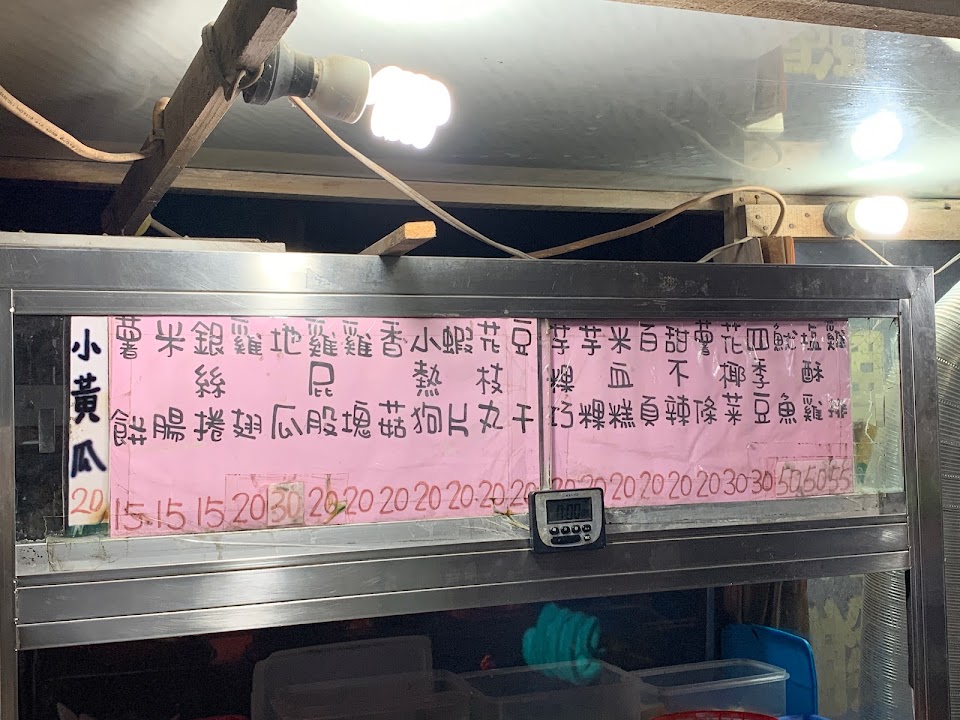 雞排 55
塩酥雞 50
魷魚 50
四季豆 30
花椰菜 30
薯條 20
甜不辣 20
百頁 20
米血糕 20
芋粿 20
芋粿巧
豆干 20
花枝丸 20
蝦片 20
小熱狗 20
香菇 20
雞塊 20
雞屁股 20
地瓜 30
雞翅 20
銀絲捲 15
米腸 15
薯餅 15
小黃瓜 20